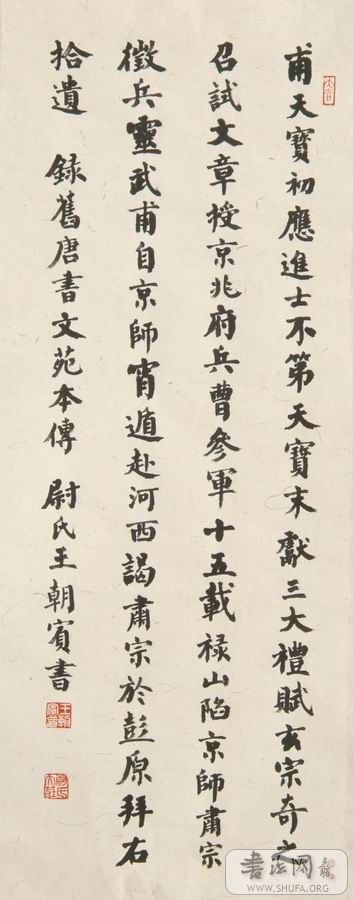 甫天寶初應進士不第天寶末獻三大禮賦玄宗奇之
召試文章授京兆府兵曹參軍十五載祿山陷京師肅宗
徵兵靈武甫自京師宵遁赴河西謁肅宗於彭原拜右
拾遺 錄舊唐書文苑本傳 尉氏王朝賓書
書法网
WWW.SHUFA.ORG